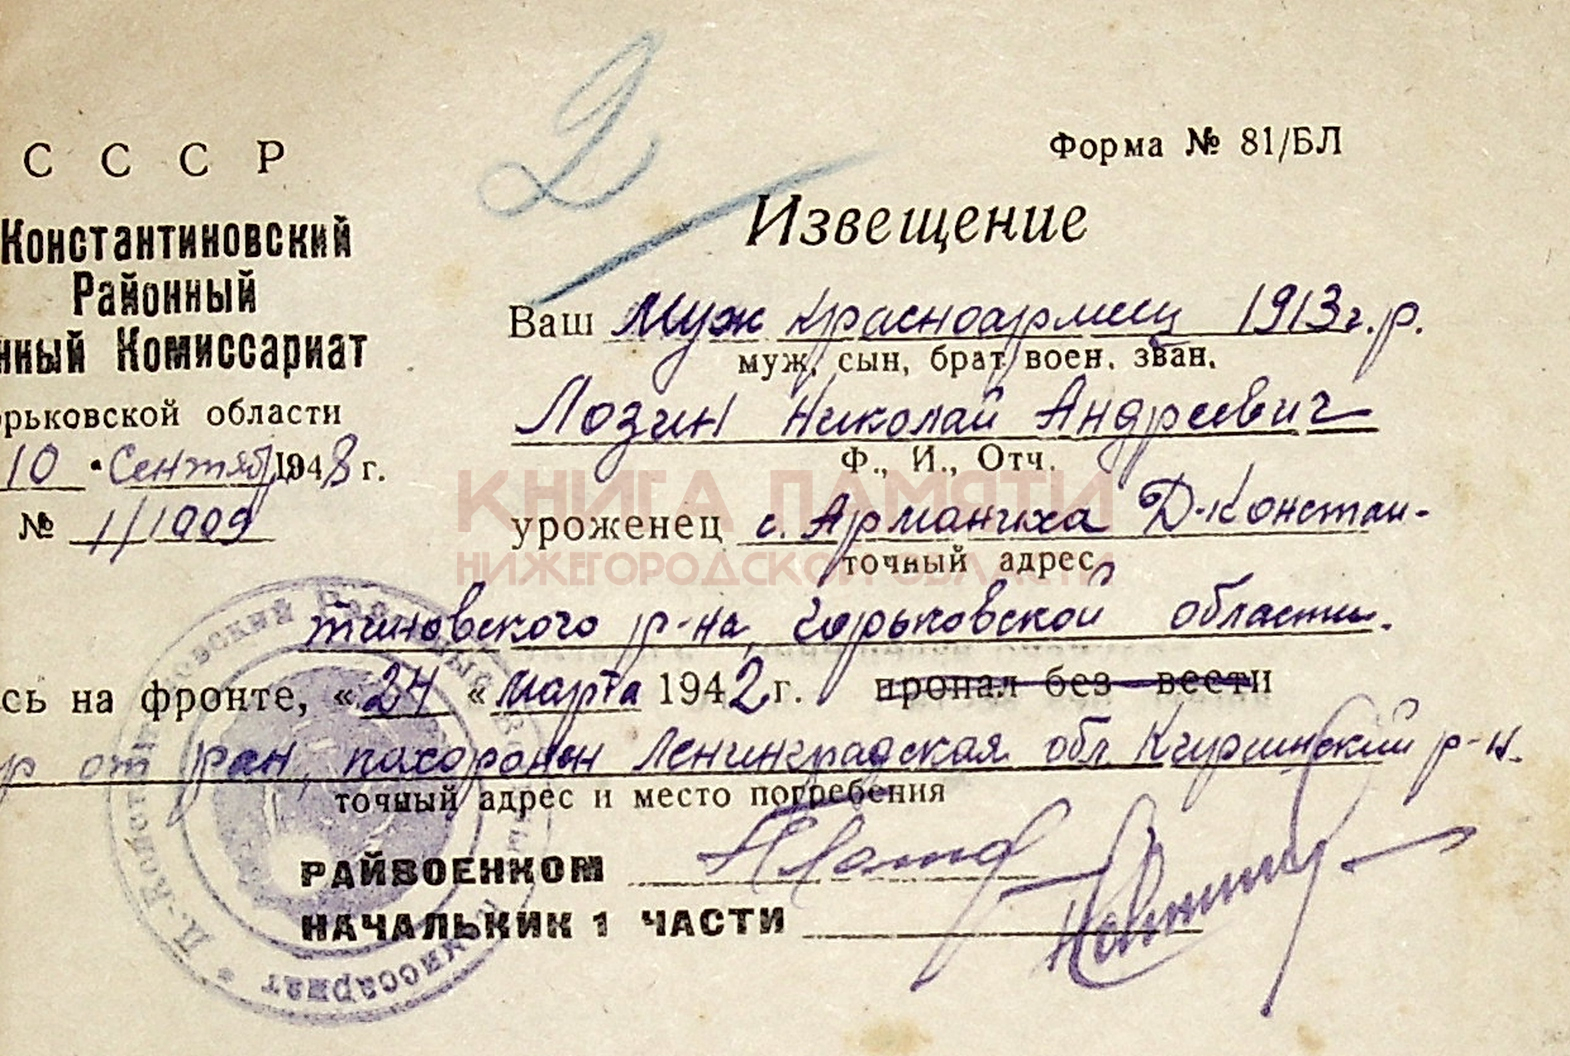 2
С С С Р
Константиновский
Районный
нный Комиссариат
орьковской области
10 "Сентяб 1948 г.
№ 1/1009
Форма № 81/БЛ
Извещение
Ваш муж красноармеец 1913 г.р.
муж, сын, брат воен. зван.
Лозин Николай Андреевич
Ф., И., Отч.
КНИГА ПАМЯТИ
НИЖЕГОРОДСКОЙ ОБЛАСТИ
уроженец с. Арманиха Д-Констан-
точный адрес
тиновского р-на, Горьковской области.
сь на фронте, « 24 « марта 1942 г. пропал без вести
р от ран, похоронен Ленинградская обл. Киришский р-н.
точный адрес и место погребения
РАЙВОЕНКОМ
НАЧАЛЬКИК 1 ЧАСТИ
Д.-Константиновский Районный Военный Комиссариат